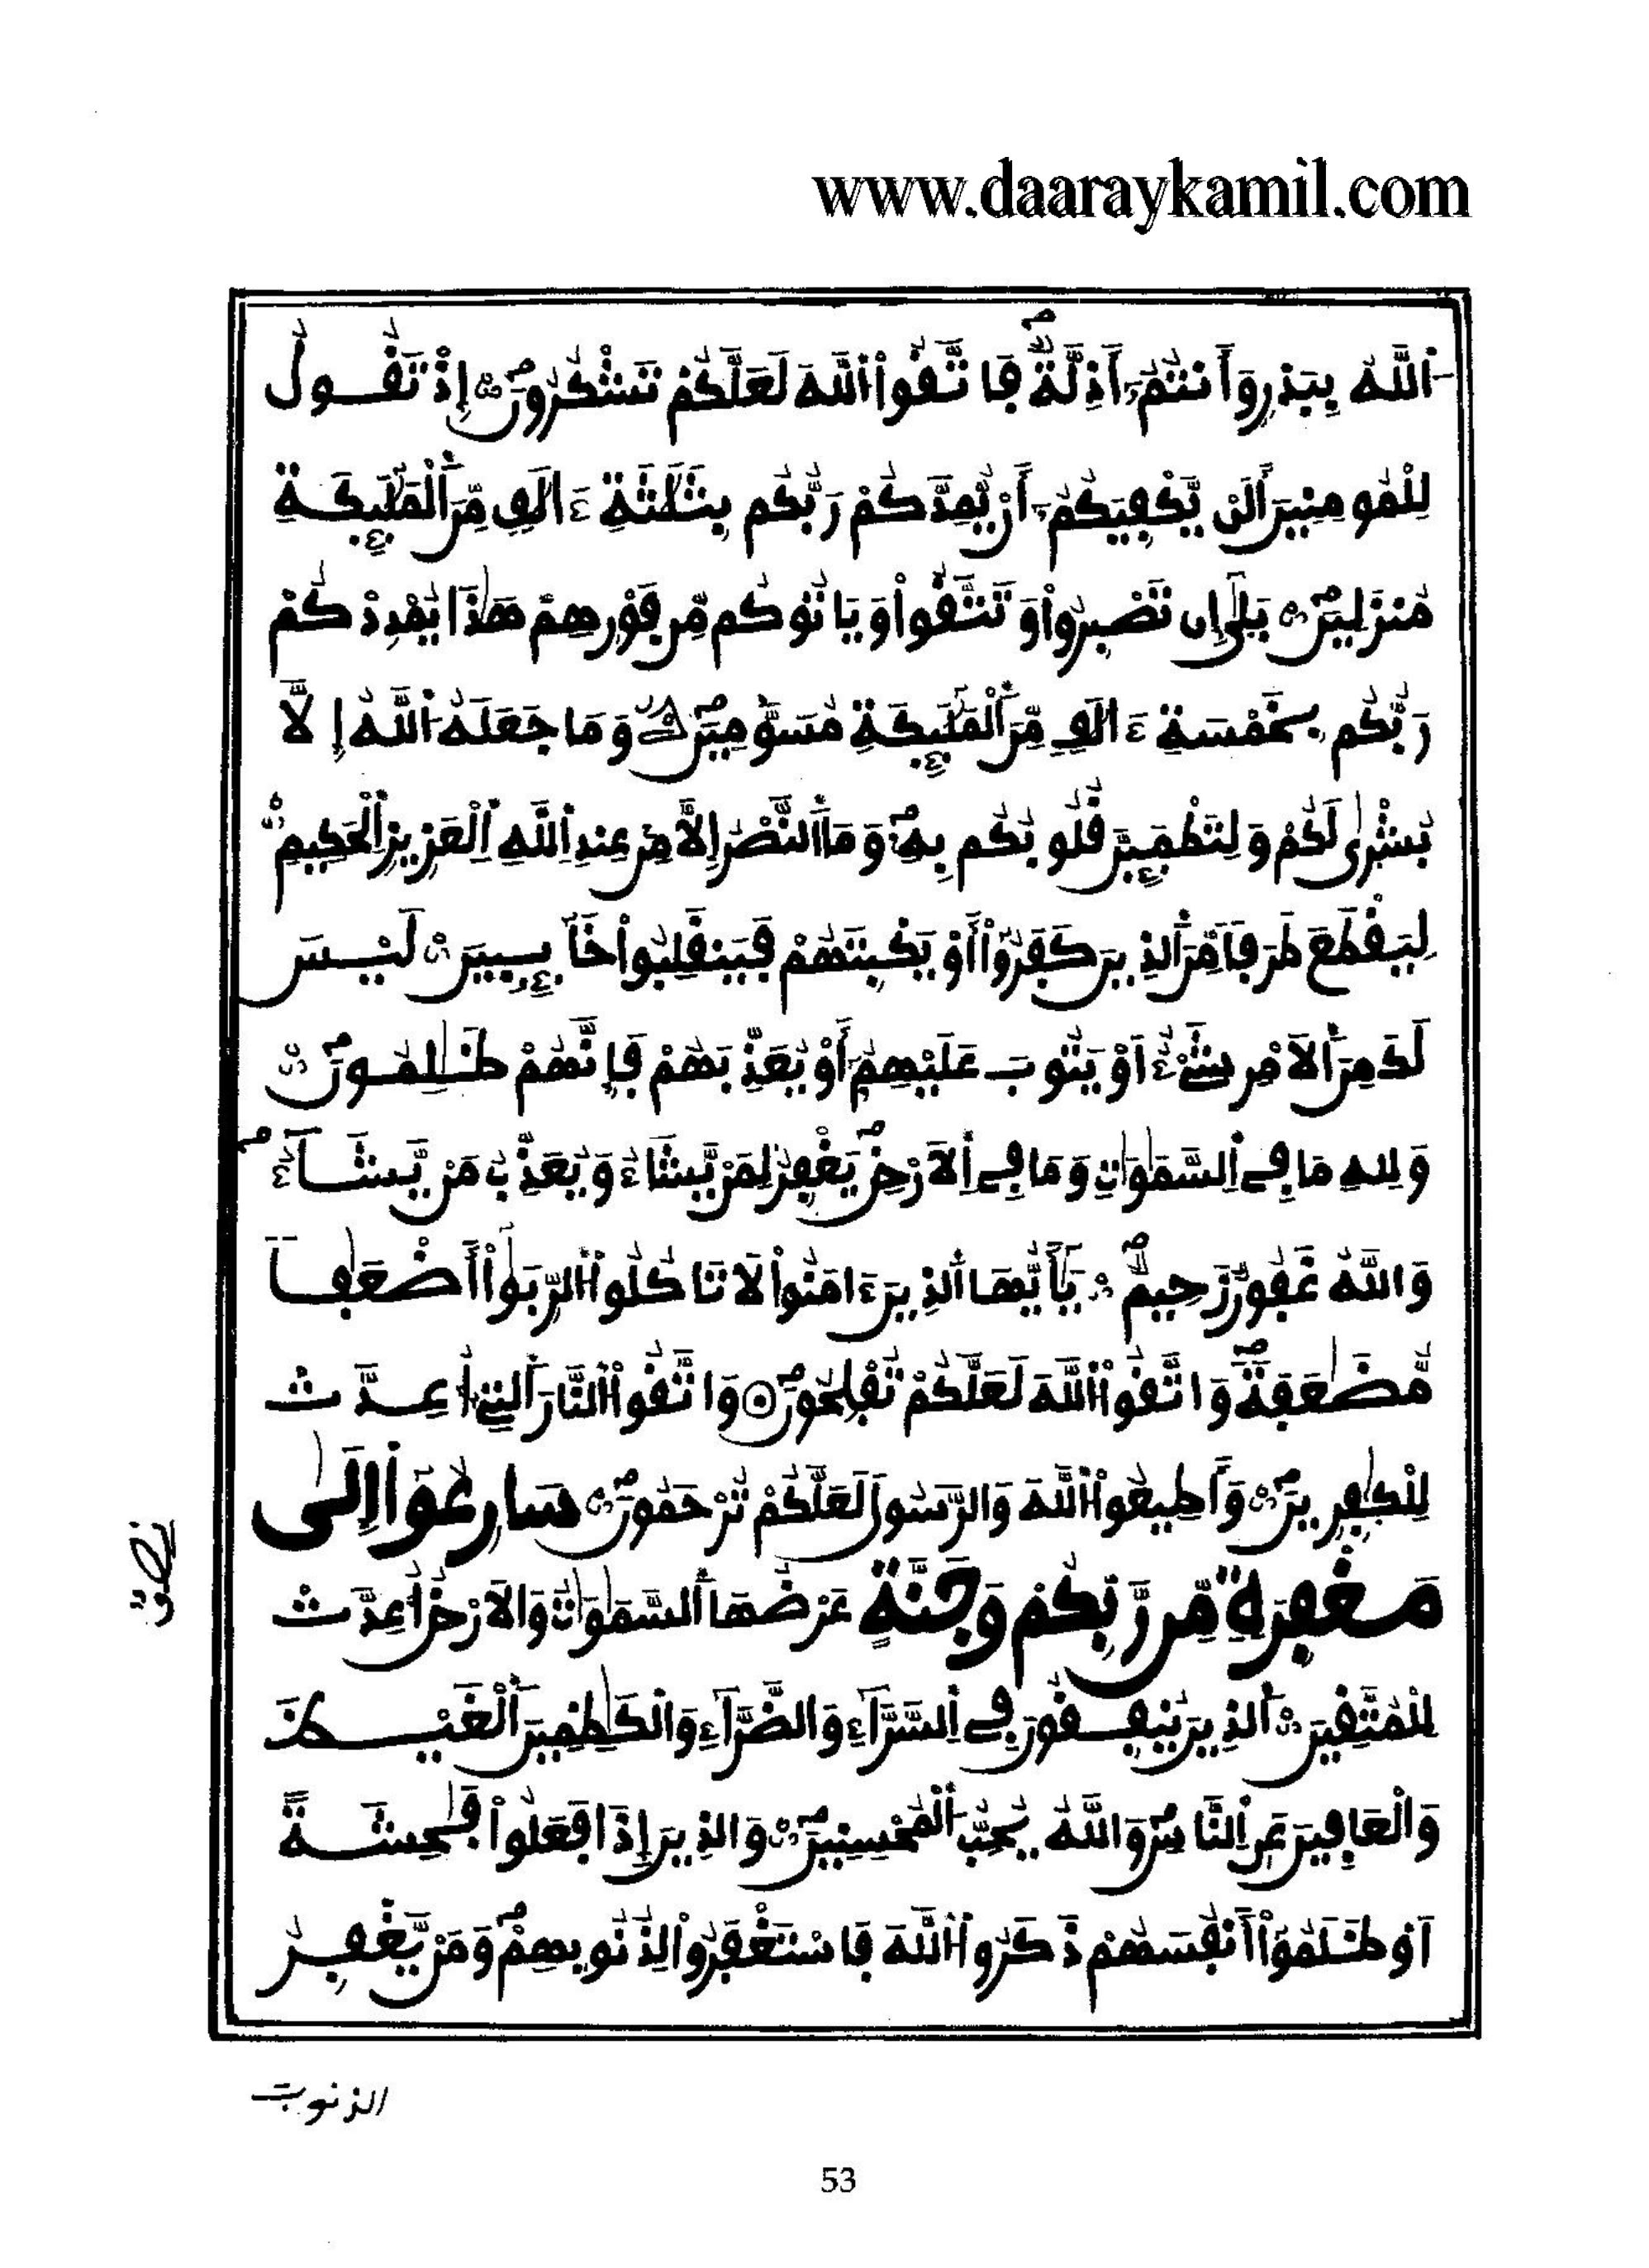 www.daaraykamil.com
اَ۬للَّهُ بِبَدْرٍ وَأَنتُمُۥٓ أَذِلَّةٌۖ فَاتَّقُواْ اُ۬للَّهَ لَعَلَّكُمْ تَشْكُرُونَۖ إِذْ تَقُولُ
لِلْمُومِنِينَ أَلَنْ يَّكْفِيَكُمُۥٓ أَنْ يُّمِدَّكُمْ رَبُّكُم بِثَلَٰثَةِ ءَالَٰفٍ مِّنَ اَ۬لْمَلَٰٓئِكَةِ
مُنزَلِينَۖ بَلَىٰٓ إِن تَصْبِرُواْ وَتَتَّقُواْ وَيَاتُوكُم مِّن فَوْرِهِمْ هَٰذَا يُمْدِدْكُمْ
رَبُّكُم بِخَمْسَةِ ءَالَٰفٍ مِّنَ اَ۬لْمَلَٰٓئِكَةِ مُسَوَّمِينَۖ وَمَا جَعَلَهُ اُ۬للَّهُ إِلَّا
بُشْرَىٰ لَكُمْ وَلِتَطْمَئِنَّ قُلُوبُكُم بِهِۦۖ وَمَا اَ۬لنَّصْرُ إِلَّا مِنْ عِندِ اِ۬للَّهِ اِ۬لْعَزِيزِ اِ۬لْحَكِيمِ
لِيَقْطَعَ طَرَفاً مِّنَ اَ۬لذِينَ كَفَرُوٓاْ أَوْ يَكْبِتَهُمْ فَيَنقَلِبُواْ خَآئِبِينَۖ لَيْسَ
لَكَ مِنَ اَ۬لَامْرِ شَےْءٌ اَوْ يَتُوبَ عَلَيْهِمُۥٓ أَوْ يُعَذِّبَهُمْ فَإِنَّهُمْ ظَٰلِمُونَۖ
وَلِلهِ مَا فِے اِ۬لسَّمَٰوَٰتِ وَمَا فِے اِ۬لَارْضِۖ يَغْفِرُ لِمَنْ يَّشَآءُ وَيُعَذِّبُ مَنْ يَّشَآءُۖ
وَاللَّهُ غَفُورٌ رَّحِيمٌۖ يَٰٓأَيُّهَا اَ۬لذِينَ ءَامَنُواْ لَا تَاكُلُواْ اُ۬لرِّبَوٰٓاْ أَضْعَٰفاً
مُّضَٰعَفَةًۖ وَاتَّقُواْ اُ۬للَّهَ لَعَلَّكُمْ تُفْلِحُونَۖ وَاتَّقُواْ اُ۬لنَّارَ اَ۬لتِےٓ أُعِدَّتْ
لِلْكَٰفِرِينَۖ وَأَطِيعُواْ اُ۬للَّهَ وَالرَّسُولَ لَعَلَّكُمْ تُرْحَمُونَۖ سَارِعُوٓاْ إِلَىٰ
مَغْفِرَةٍ مِّن رَّبِّكُمْ وَجَنَّةٍ عَرْضُهَا اَ۬لسَّمَٰوَٰتُ وَالَارْضُ أُعِدَّتْ
لِلْمُتَّقِينَ اَ۬لذِينَ يُنفِقُونَ فِے اِ۬لسَّرَّآءِ وَالضَّرَّآءِ وَالْكَٰظِمِينَ اَ۬لْغَيْظَ
وَالْعَافِينَ عَنِ اِ۬لنَّاسِۖ وَاللَّهُ يُحِبُّ اُ۬لْمُحْسِنِينَۖ وَالذِينَ إِذَا فَعَلُواْ فَٰحِشَةً
اَوْ ظَلَمُوٓاْ أَنفُسَهُمْ ذَكَرُواْ اُ۬للَّهَ فَاسْتَغْفَرُواْ لِذُنُوبِهِمْۖ وَمَنْ يَّغْفِرُ
الذنوب
53